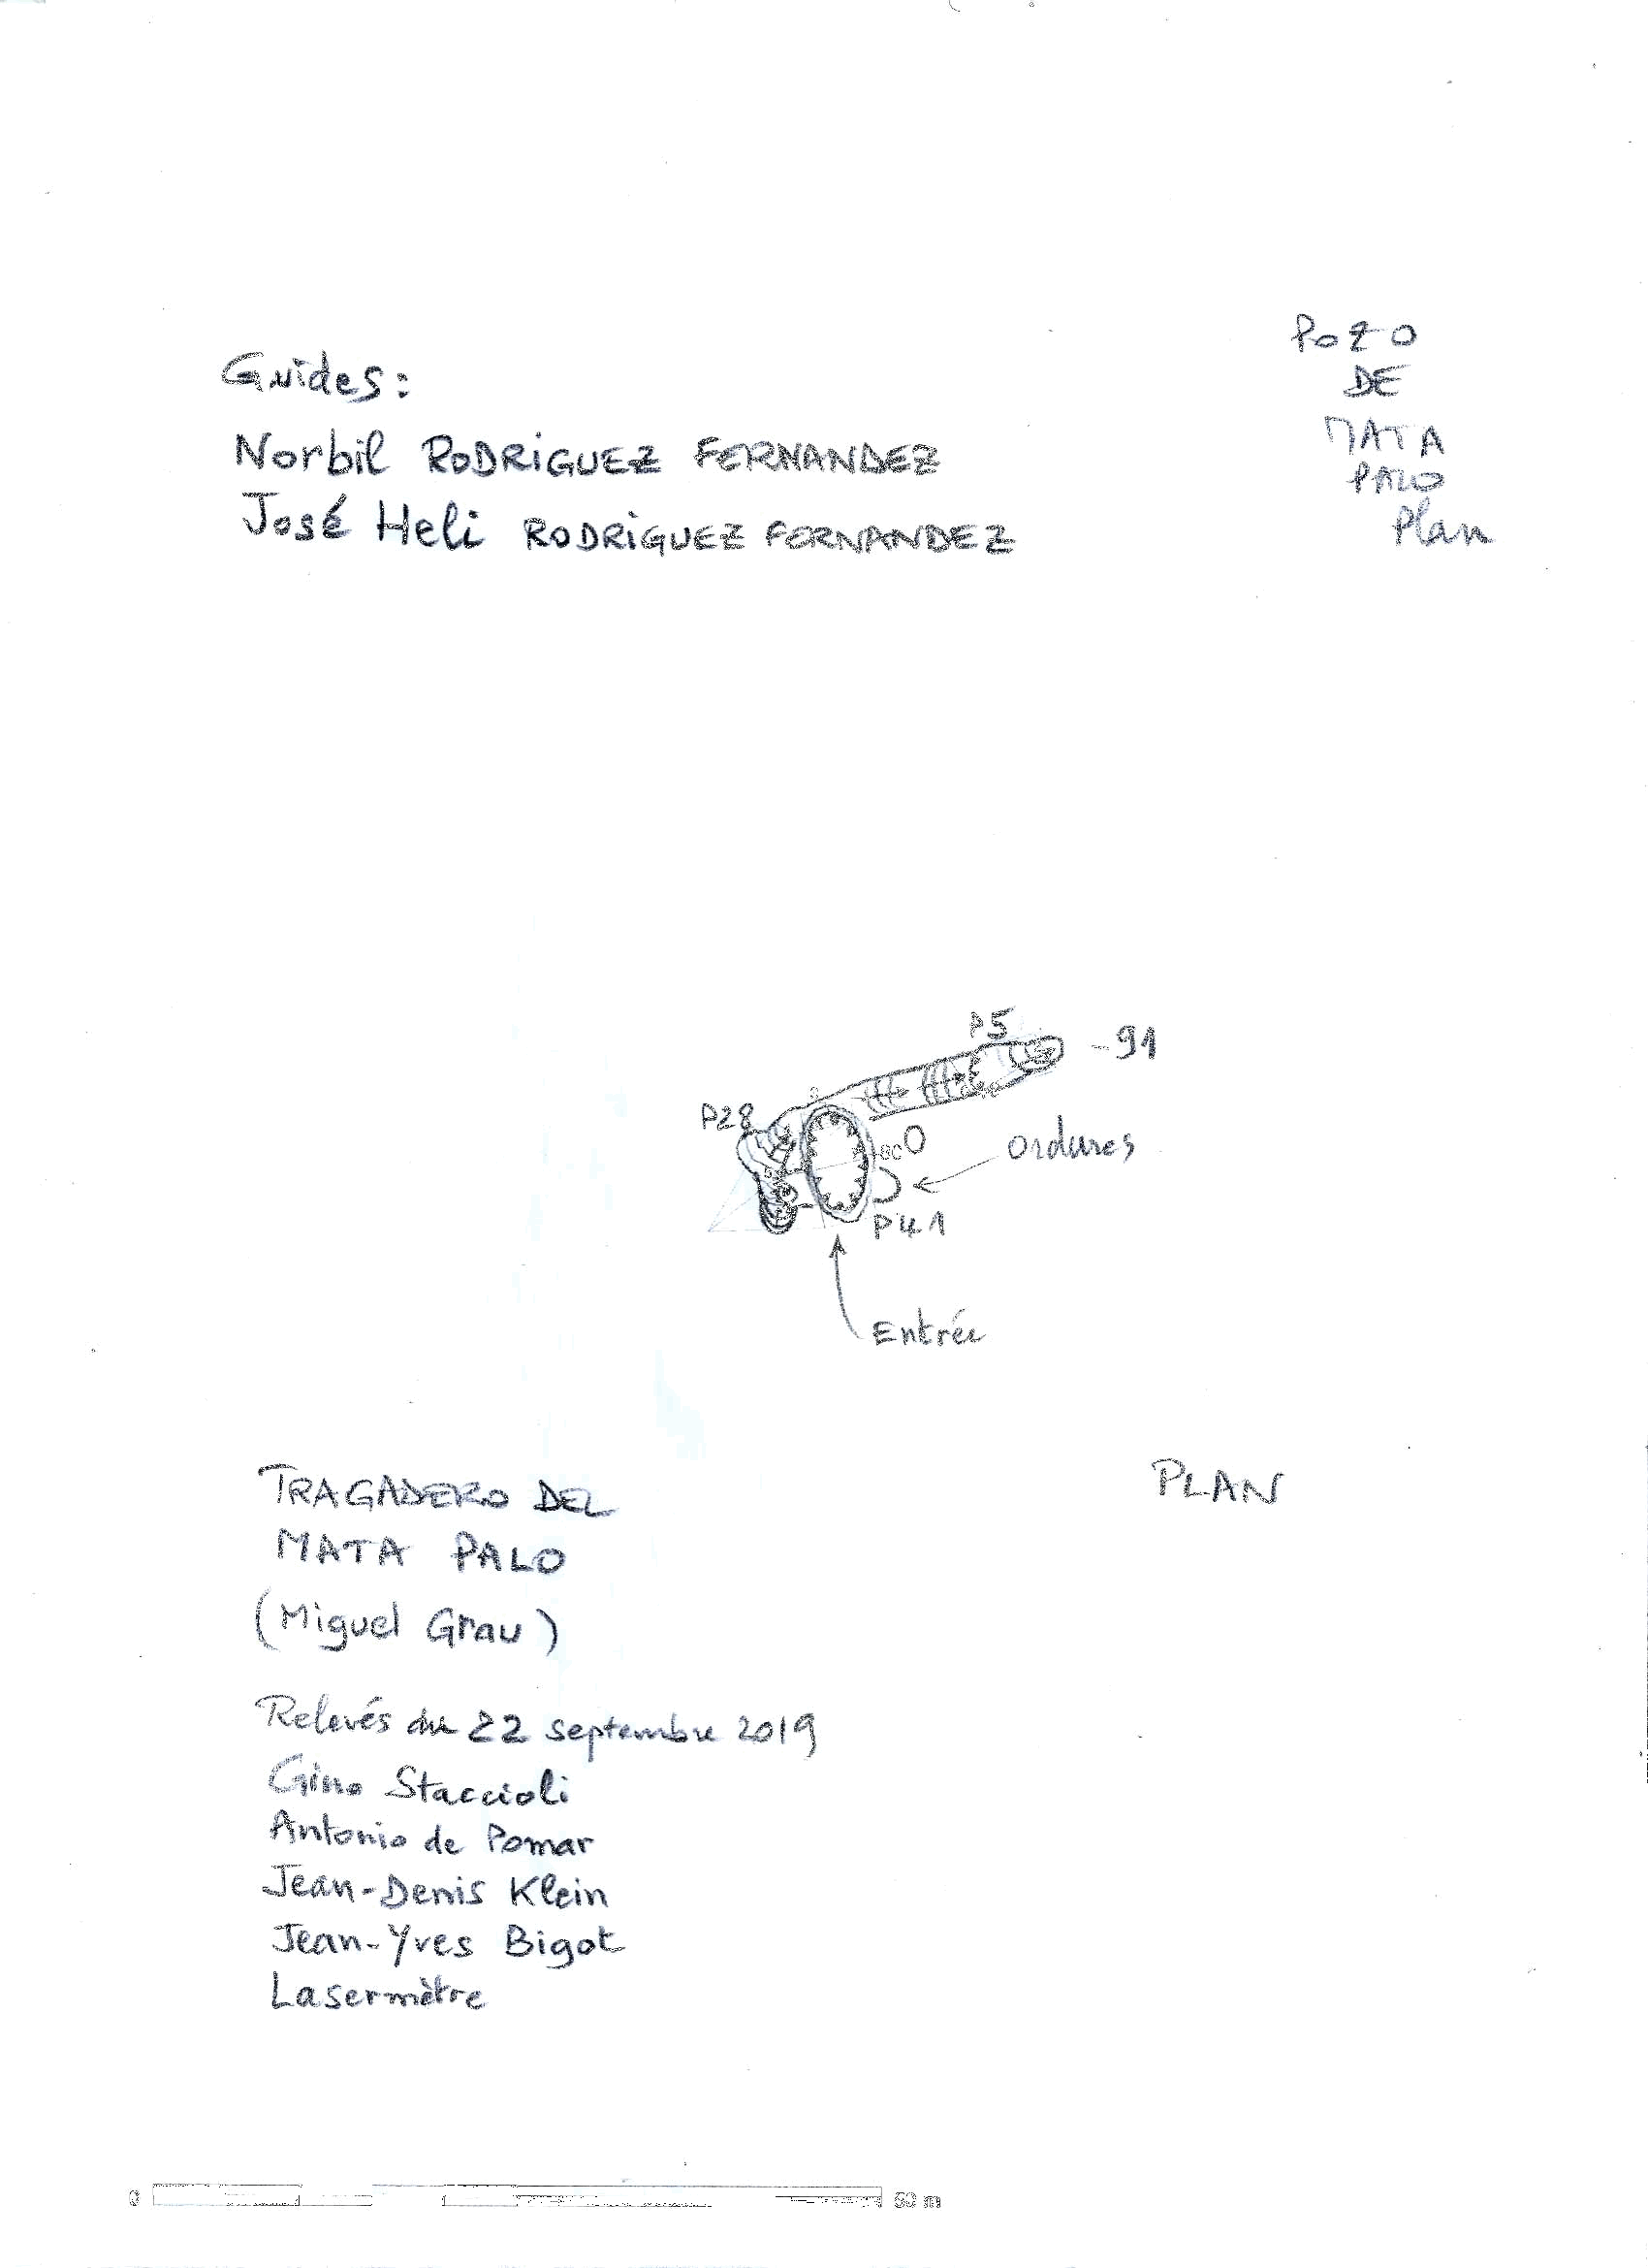 Pozo
DE
MATA
PALO
Plan
Guides:
Norbil RODRIGUEZ FERNANDEZ
José Heli RODRIGUEZ FERNANDEZ
P5
-91
P28
Ordures
P41
Entrée
TRAGADERO DEL
MATA PALO
(Miguel Grau)
PLAN
Relevés du 22 septembre 2019
Gino Staccioli
Antonio de Pomar
Jean-Denis Klein
Jean-Yves Bigot
Lasermètre
0 50 m